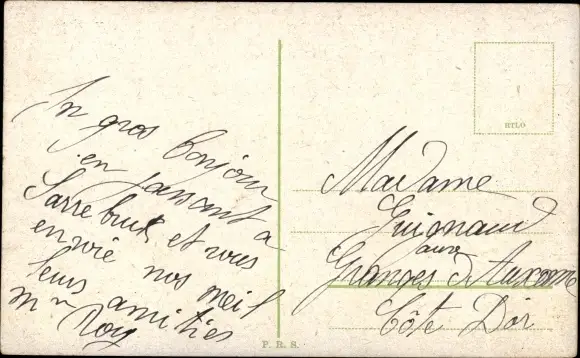 Un gros bonjour
en passant a
Sarrebruk et vous
envoie nos meil
leurs amities
Mm Roy
Madame
Guignaud
aux
Granges d'Auxonne
Côte D'or
HTLO
P. R. S.